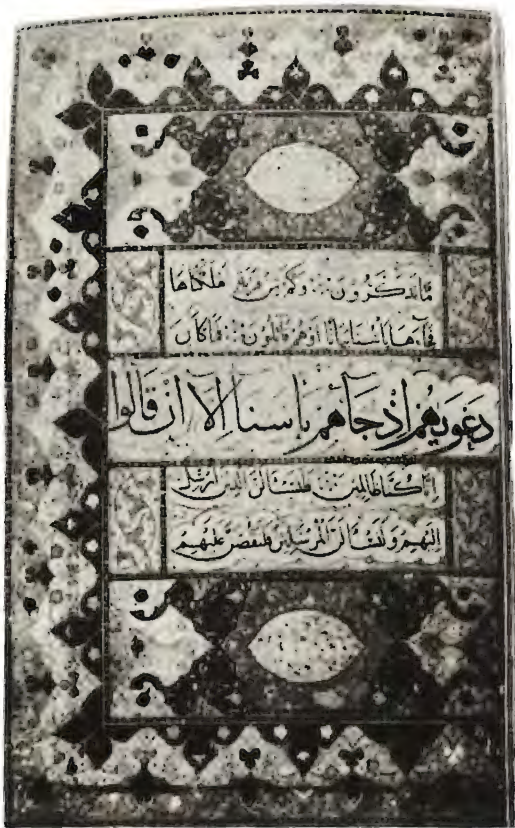 ما تذكرون وكم من قرية اهلكناها
فجآءها بأسنا بياتا اوهم قائلون فما كان
دعويهم إذ جآءهم بأسنا إلا ان قالوا
إنا كنا ظالمين فلنسئلن الذين ارسل
اليهم ولنسئلن المرسلين فلنقصن عليهم